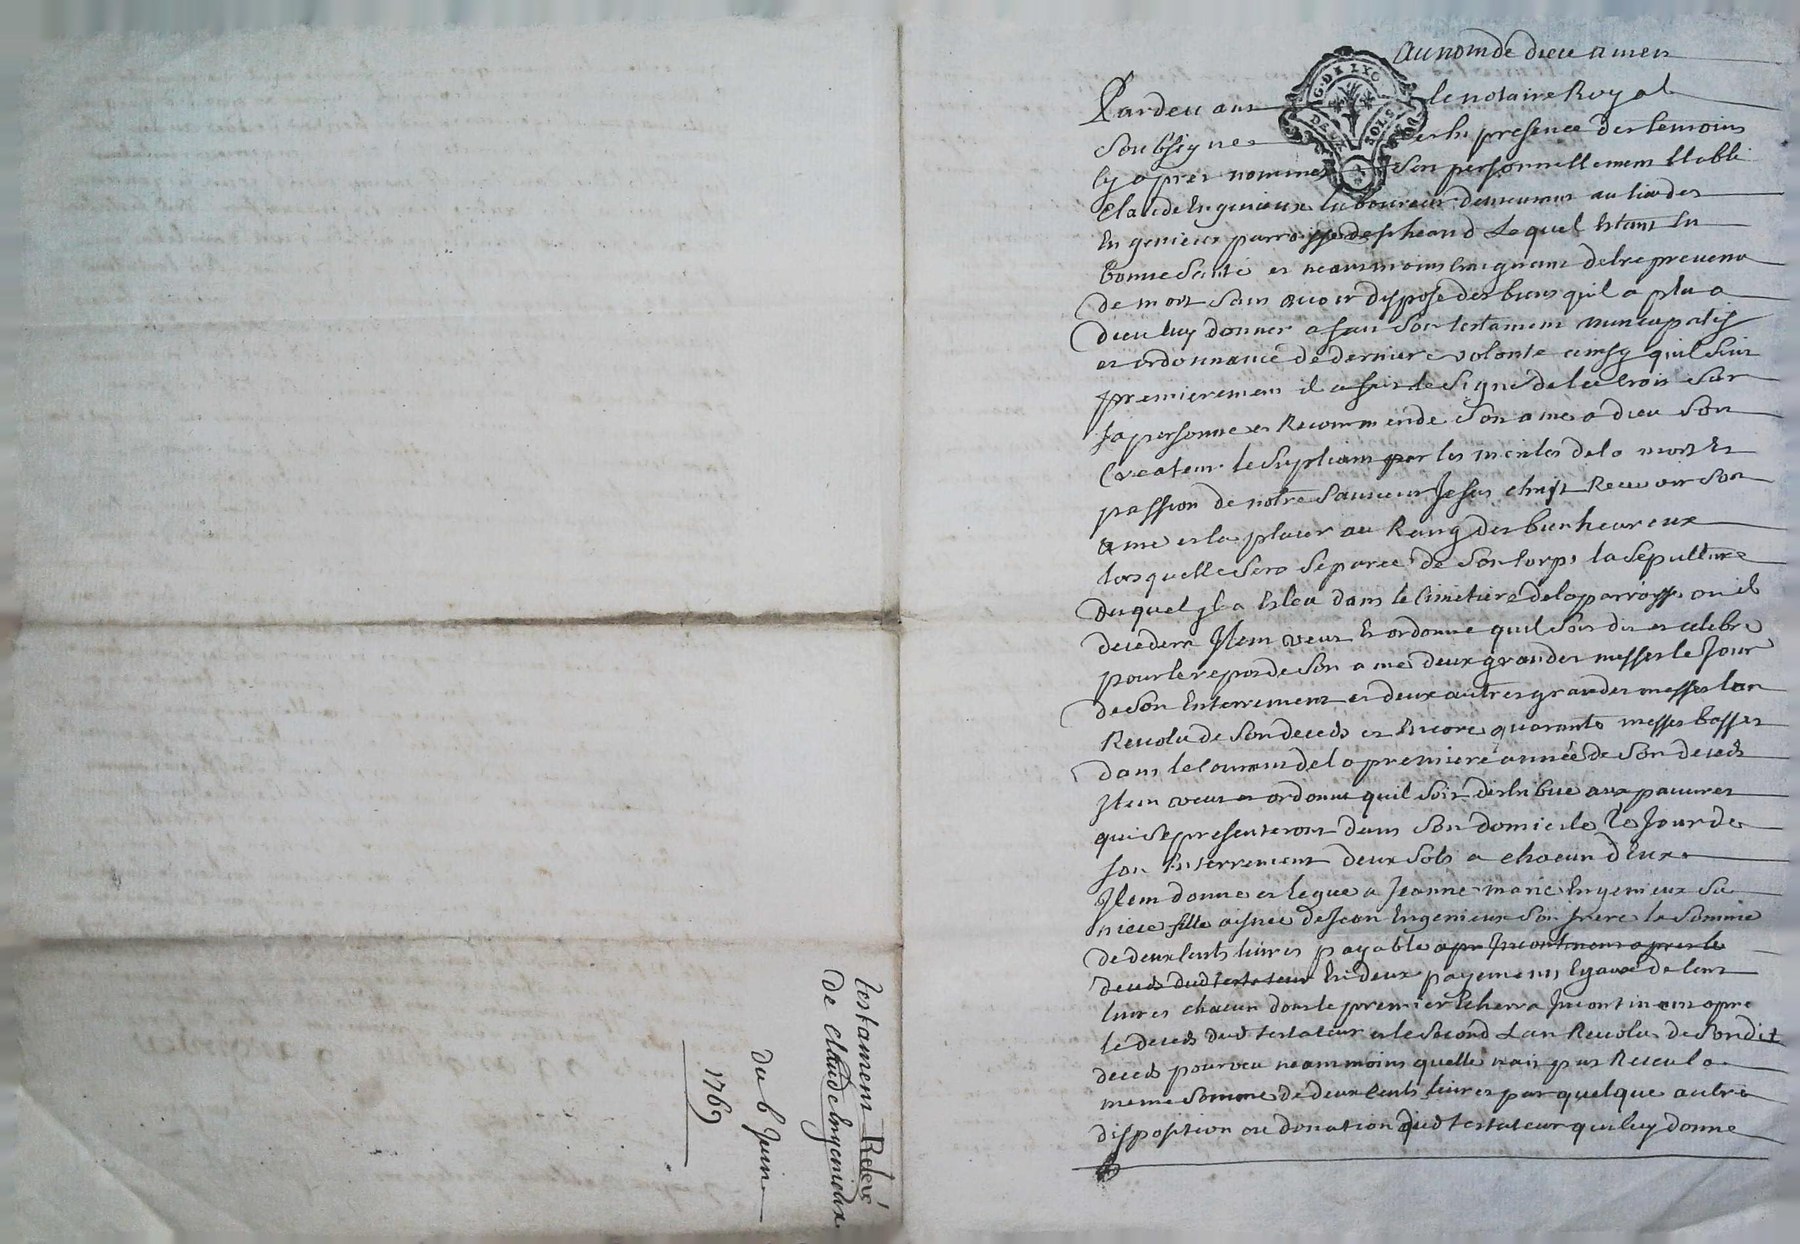 testament Relevé
de Claude Ingenieux
du 6 Juin
1769
Au nom de dieu amen
G. DE LYO
DEUX SOLS
Pardevant le notaire Royal
Soubsigné et en presence des temoins
cy apres nommes Son personnellement Etabli
Claude Ingenieux laboureur demeurant au lieu des
Ingenieux parroisse de Lequel Estant En
bonne Santé et neanmoins craignant detre prevenu
de mort Sans avoir disposé des biens quil a plu a
dieu luy donner a fait Son testament nuncupatif
et ordonnance de derniere volonte ainsy quil Suit
premierement il a fait le Signe de la Croix Sur
Sa personne et Recommende Son ame a dieu Son
Createur le Supliant par les merites de la mort Et
passion de notre Sauveur Jesus christ Recevoir Son
ame et la placer au Rang des bienheureux
lors quelle Sera Séparée de Son Corps la Sépulture
duquel yl a Esleu dans le Cimetiere de la parroisse ou il
decedera Item veut Et ordonne quil Soit dit et celebré
pour le repos de Son ame deux grandes messes le Jour
de Son Enterrement et deux autres grandes messes lan
Revolu de Son deceds et Encore quarante messes basses
dans le Courant de la premiere année de Son deceds
Item veut et ordonne quil Soit distribué aux pauvres
qui Se presenteront dans Son domicile le Jour de
Son Enterrement deux Sols a chacun d'Eux
Item donne et legue a Jeanne marie Ingenieux Sa
niece fille aisnee de Jean Ingenieux Son frere la Somme
de deux Cents livres payable apr Incontinent apres le
deceds dud testateur En deux payements Egaux de Cent
livres chacun dont le premier Echerra Incontinent apres
le deceds dud testateur et le Second Lan Revolu de Sondit
deceds pourveu neanmoins quelle nait pas Receu la
meme Somme de deux Cents livres par quelque autre
disposition ou donation dud testateur qui luy donne